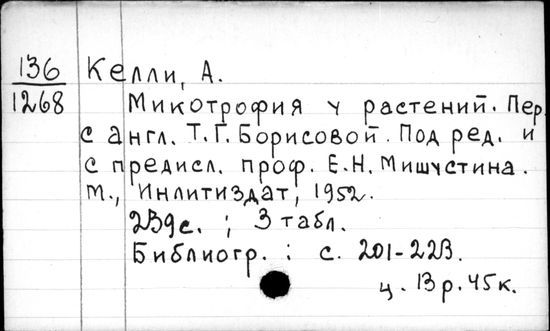 136 Келли, А.
1268
Микотрофия у растений. Пер.
с англ. Т.Г. Борисовой. Под ред. и
с предисл. проф. Е.Н. Мишустина.
М., Инлитиздат, 1952.
239с. ; 3 табл.
Библиогр. : с. 201-223.
ц. 13 р. 45 к.